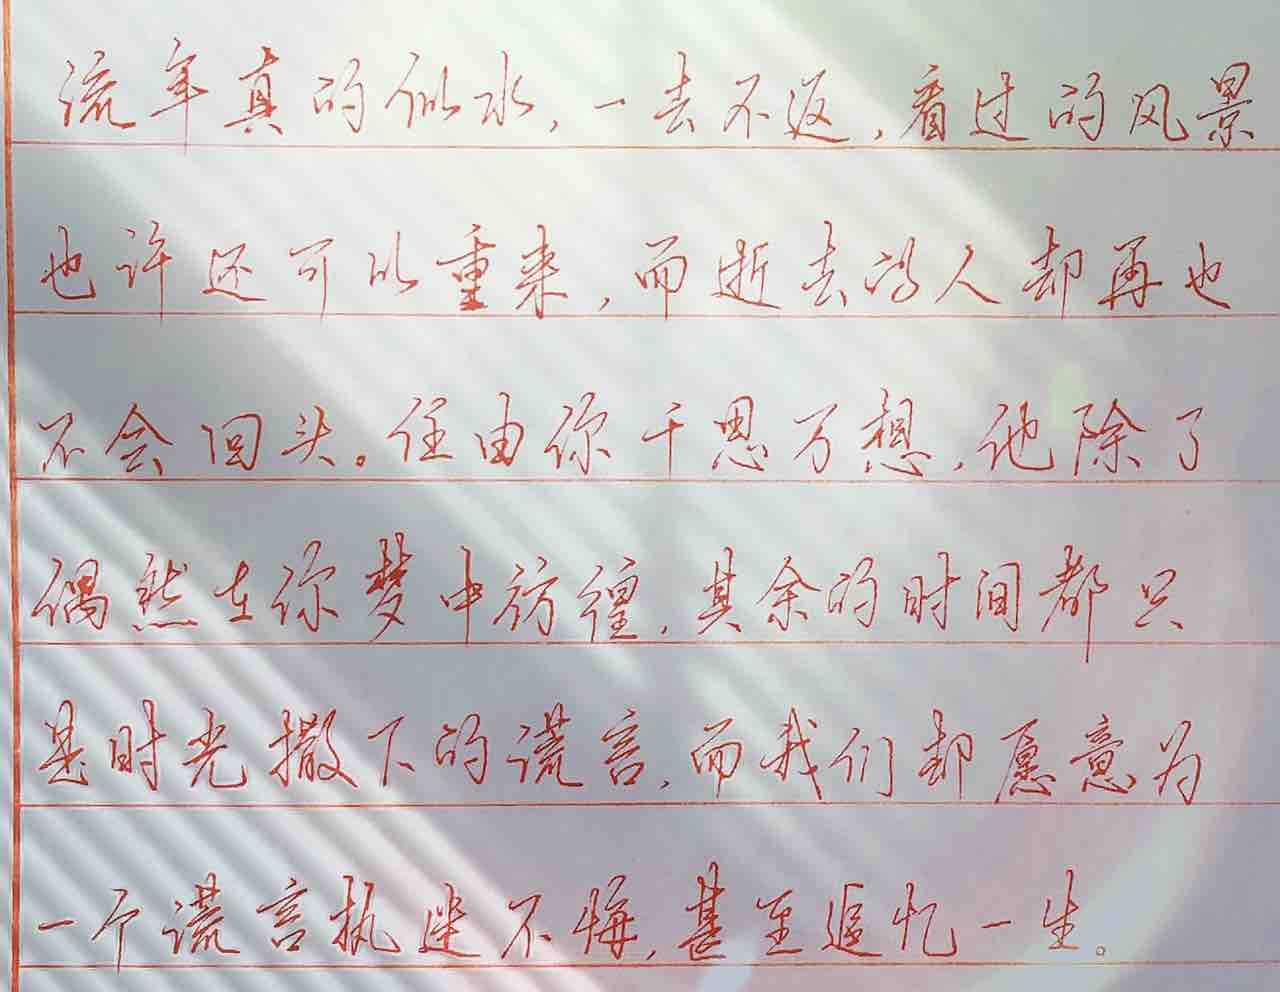 流年真的似水,一去不返,看过的风景
也许还可以重来,而逝去的人却再也
不会回头。任由你千思万想,他除了
偶然在你梦中彷徨,其余的时间都只
是时光撒下的谎言,而我们却愿意为
一个谎言执迷不悔,甚至追忆一生。